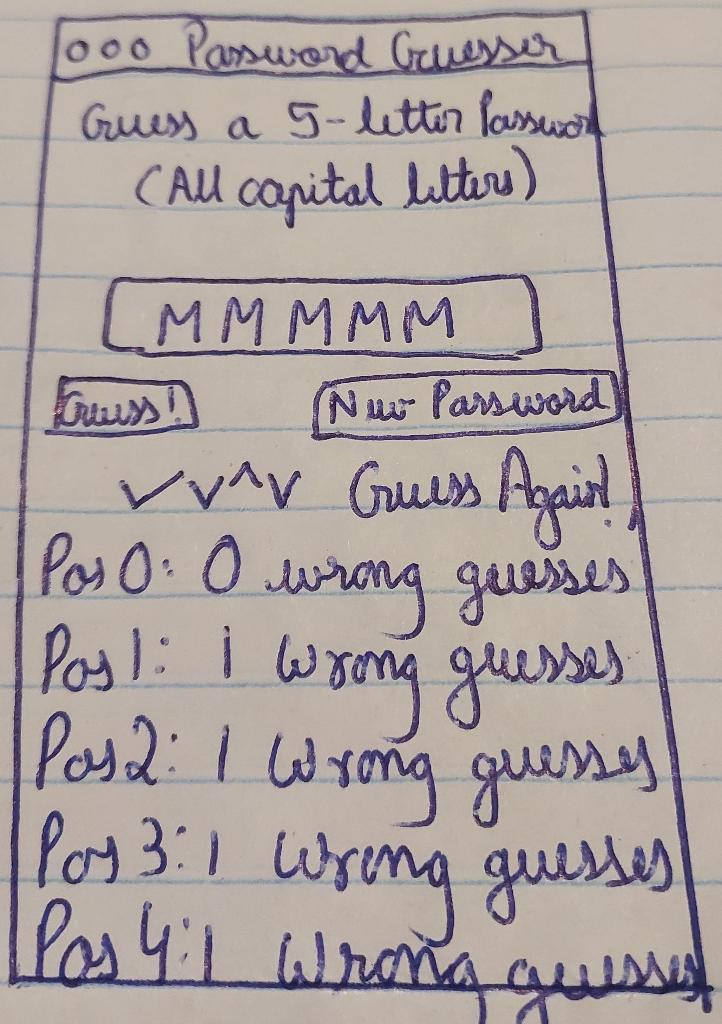 ooo Password Guesser
Guess a 5-letter Password
(All capital letters)
MMMMM
Guess! New Password
✓v^v Guess Again!
Pos 0: 0 wrong guesses
Pos 1: 1 Wrong guesses
Pos 2: 1 Wrong guesses
Pos 3: 1 Wrong guesses
Pos 4: 1 Wrong guesses